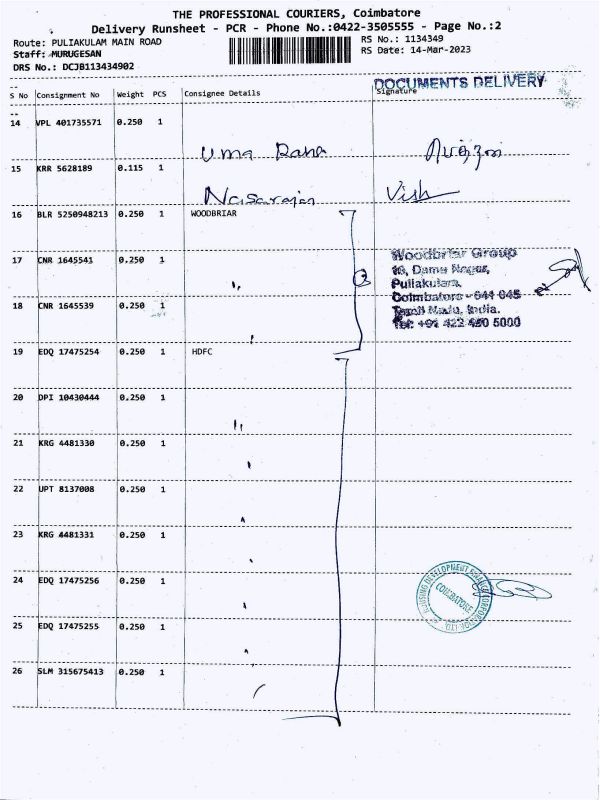 THE PROFESSIONAL COURIERS, Coimbatore
Delivery Runsheet - PCR - Phone No.:0422-3505555 - Page No.:2
Route: PULIAKULAM MAIN ROAD
RS No.: 1134349
Staff: MURUGESAN
RS Date: 14-Mar-2023
DRS No.: DCJB113434902
DOCUMENTS DELIVERY
S No Consignment No Weight PCS Consignee Details Signature
14 VPL 401735571 0.250 1
Uma Rana
15 KRR 5628189 0.115 1
Nagarajan Vish
16 BLR 5250948213 0.250 1 WOODBRIAR
17 CNR 1645541 0.250 1 "
Woodbriar Group
Puliakulam,
Coimbatore - 641 045
Tamil Nadu, India.
Tel: +91 422 450 5000
18 CNR 1645539 0.250 1
19 EDQ 17475254 0.250 1 HDFC
20 DPI 10430444 0.250 1 "
21 KRG 4481330 0.250 1
22 UPT 8137008 0.250 1
23 KRG 4481331 0.250 1
24 EDQ 17475256 0.250 1
HOUSING DEVELOPMENT FINANCE CORPORATION LTD.
COIMBATORE
25 EDQ 17475255 0.250 1
26 SLM 315675413 0.250 1